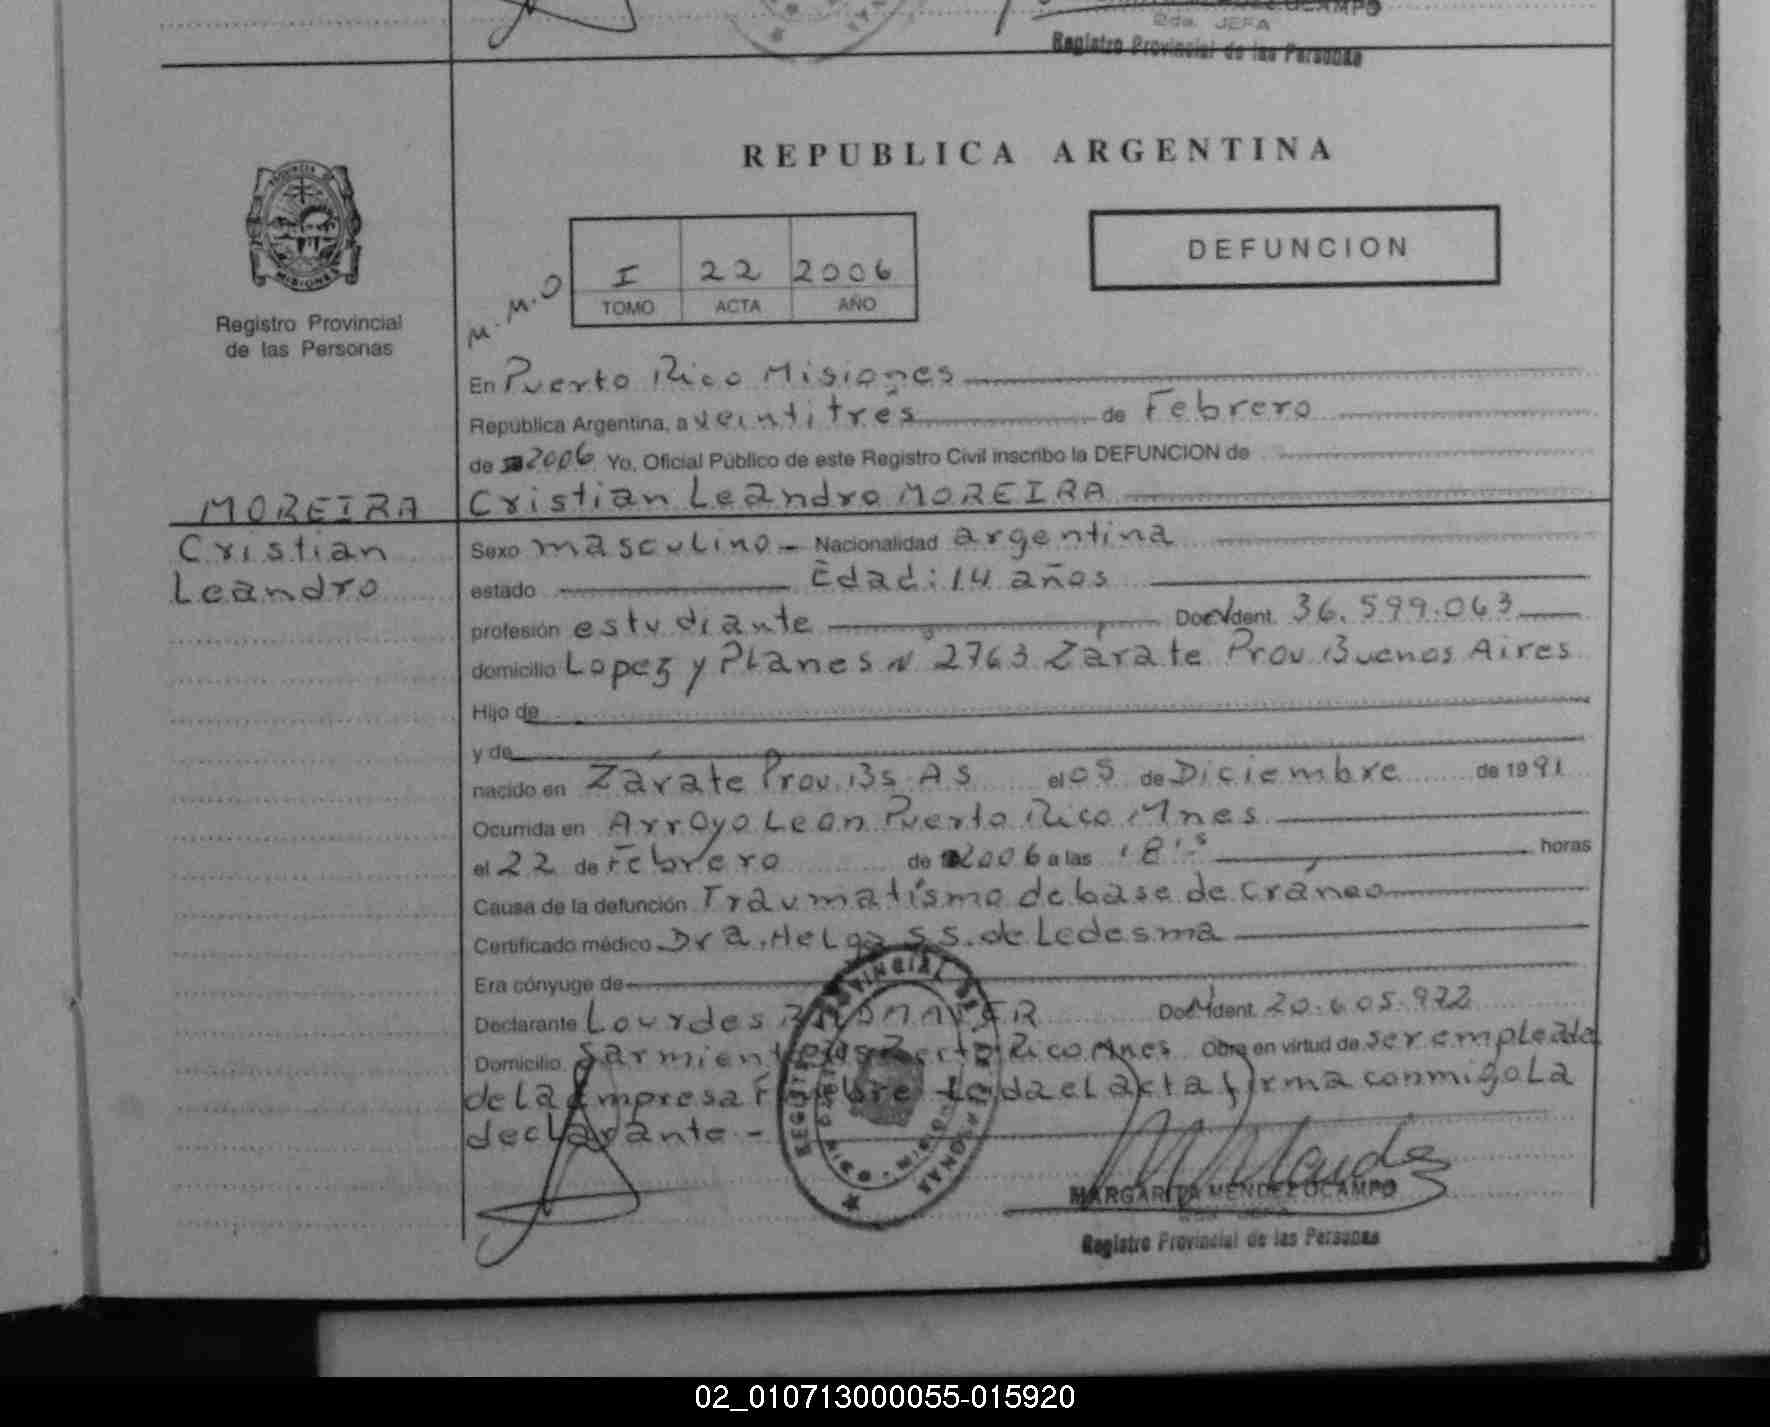 2da. JEFA
Registro Provincial de las Personas
REPUBLICA ARGENTINA
PROVINCIA DE
MISIONES
Registro Provincial
de las Personas
M.M.O
I 22 2006
TOMO ACTA AÑO
DEFUNCION
En Puerto Rico Misiones
República Argentina, a veintitrés de Febrero
de 2006 Yo, Oficial Público de este Registro Civil inscribo la DEFUNCION de
MOREIRA
Cristian
Leandro
Cristian Leandro MOREIRA
Sexo masculino - Nacionalidad argentina
estado Edad: 14 años
profesión estudiante Doc. Ident. 36.599.063
domicilio Lopez y Planes N 2763 Zárate Prov. Buenos Aires
Hijo de
y de
nacido en Zárate Prov. Bs. AS el 05 de Diciembre de 1991
Ocurrida en Arroyo Leon Puerto Rico Mnes
el 22 de Febrero de 2006 a las horas
Causa de la defunción Traumatismo de base de cráneo
Certificado médico Dra. Helga S S. de Ledesma
Era cónyuge de
Declarante Lourdes Doc. Ident. 20.605.972
Domicilio Sarmiento Puerto Rico Mnes Obra en virtud de ser empleada
de la Empresa Fúnebre Leda el acta firma conmigo La
declarante -
REGISTRO PROVINCIAL DE LAS PERSONAS
MARGARITA MENDEZ OCAMPO
2da. JEFA
Registro Provincial de las Personas
02_010713000055-015920